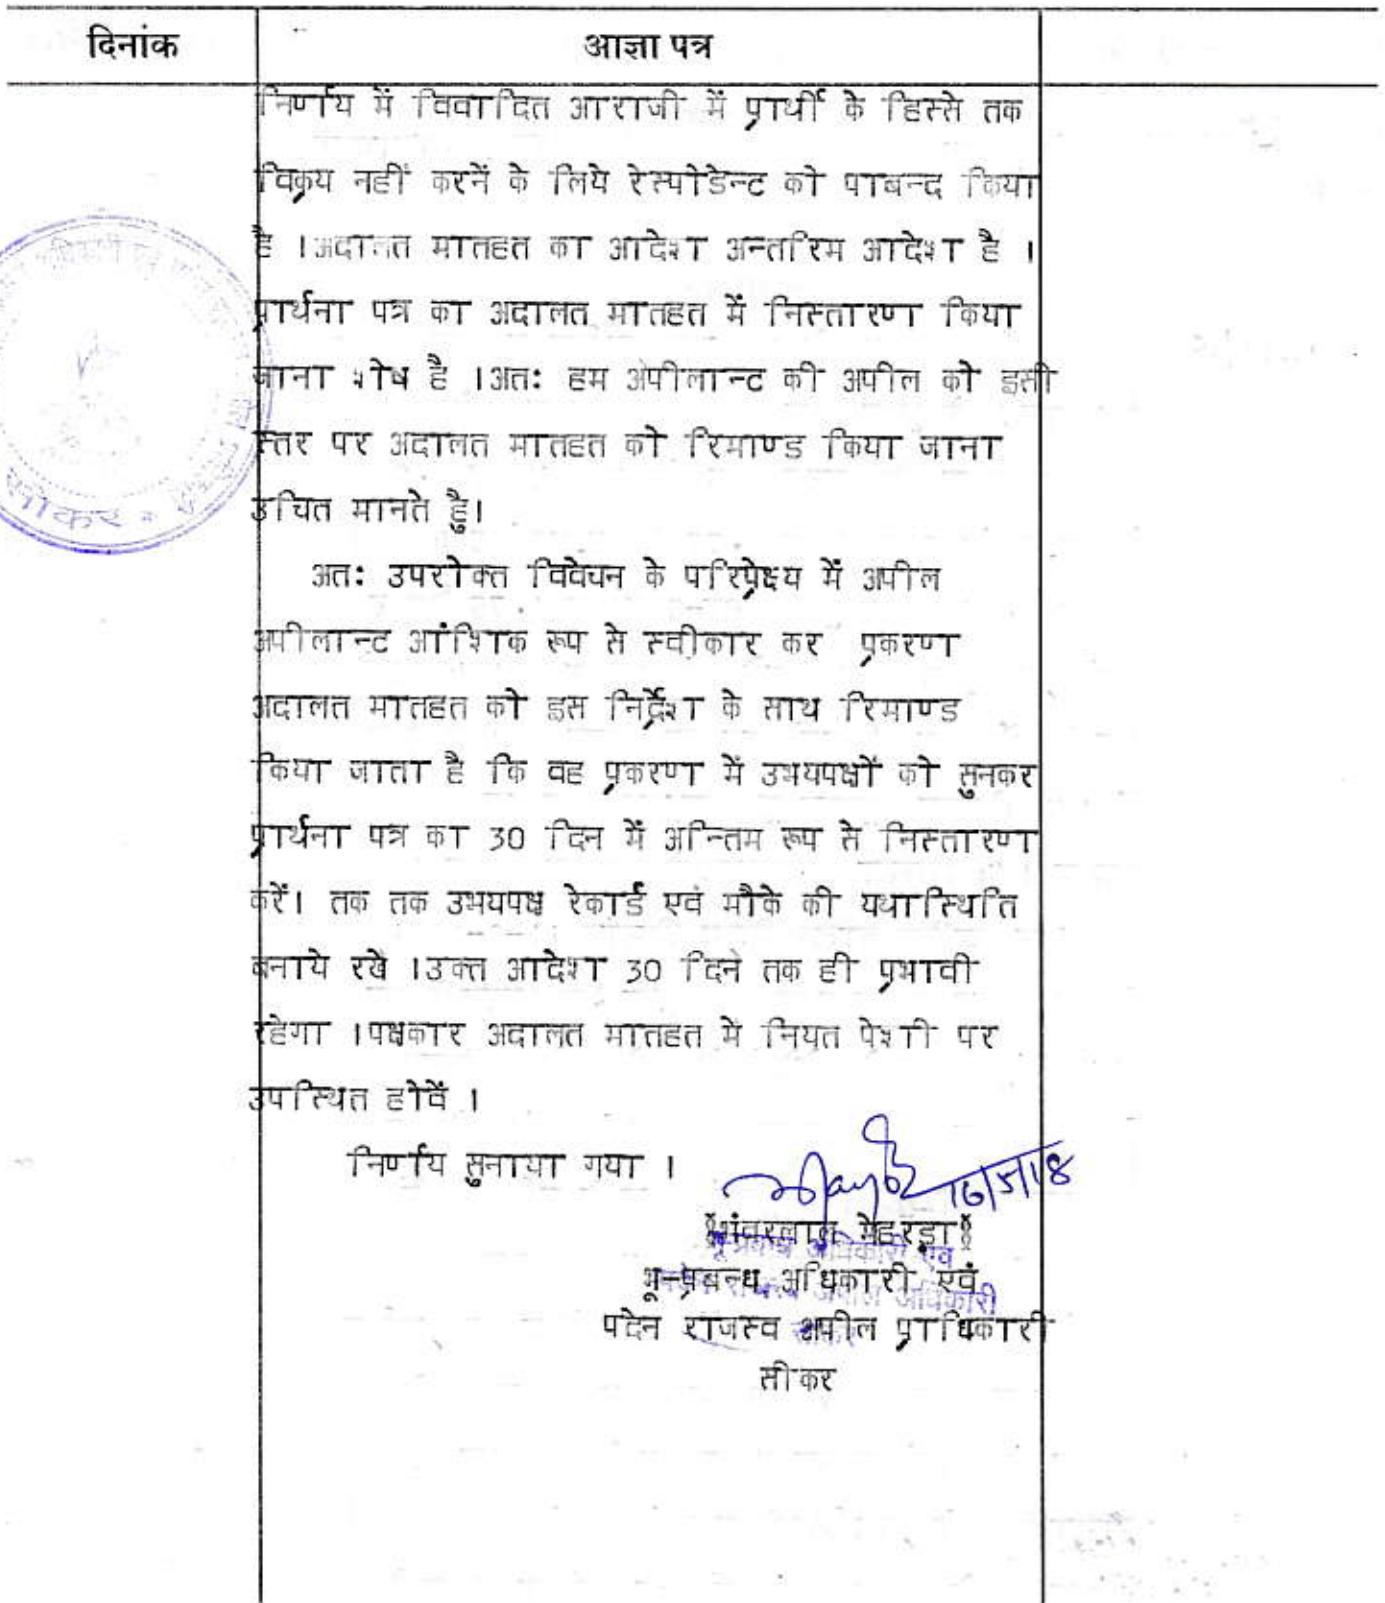 दिनांक
आज्ञा पत्र
निर्णय में विवादित आराजी में प्रार्थी के हिस्से तक
विक्रय नहीं करनें के लिये रेस्पोडेन्ट को पाबन्द किया
है ।अदालत मातहत का आदेश अन्तरिम आदेश है ।
प्रार्थना पत्र का अदालत मातहत में निस्तारण किया
जाना शेष है ।अतः हम अपीलान्ट की अपील को इसी
स्तर पर अदालत मातहत को रिमाण्ड किया जाना
उचित मानते है।
अतः उपरोक्त विवेचन के परिप्रेक्ष्य में अपील
अपीलान्ट आंशिक रूप से स्वीकार कर प्रकरण
अदालत मातहत को इस निर्देश के साथ रिमाण्ड
किया जाता है कि वह प्रकरण में उभयपक्षों को सुनकर
प्रार्थना पत्र का 30 दिन में अन्तिम रूप से निस्तारण
करें। तक तक उभयपक्ष रेकार्ड एवं मौके की यथास्थिति
बनाये रखे ।उक्त आदेश 30 दिने तक ही प्रभावी
रहेगा ।पक्षकार अदालत मातहत मे नियत पेशी पर
उपस्थित होवें ।
निर्णय सुनाया गया ।
16/5/18
भंवरलाल मेहरड़ा
भू प्रबन्ध अधिकारी एव
भू-प्रबन्ध अधिकारी एवं
पदेन राजस्व अपील प्राधिकारी
सीकर
सीकर